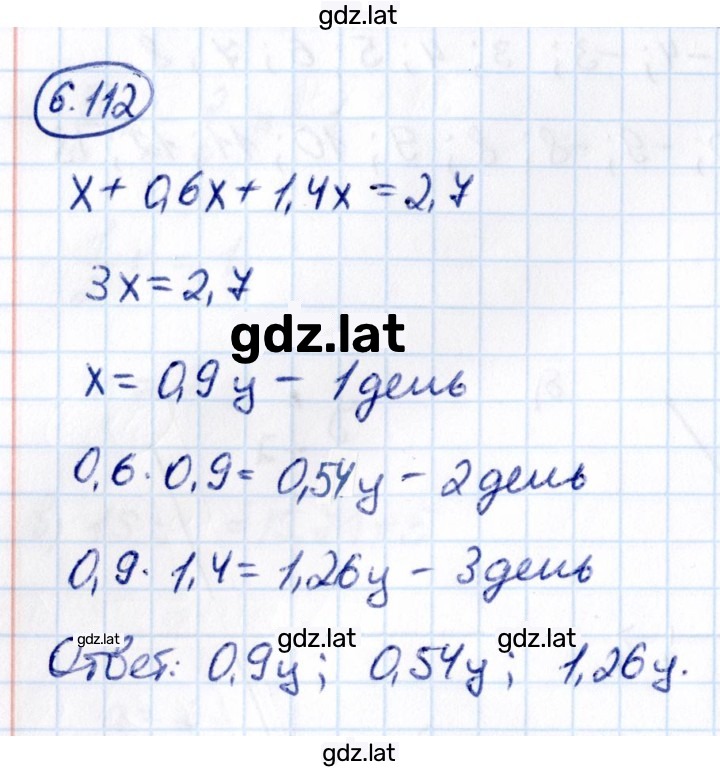 gdz.lat
6.112
x + 0,6x + 1,4x = 2,7
3x = 2,7
gdz.lat
x = 0,9 ц - 1 день
0,6 · 0,9 = 0,54 ц - 2 день
0,9 · 1,4 = 1,26 ц - 3 день
gdz.lat gdz.lat gdz.lat
Ответ: 0,9 ц; 0,54 ц; 1,26 ц.
gdz.lat